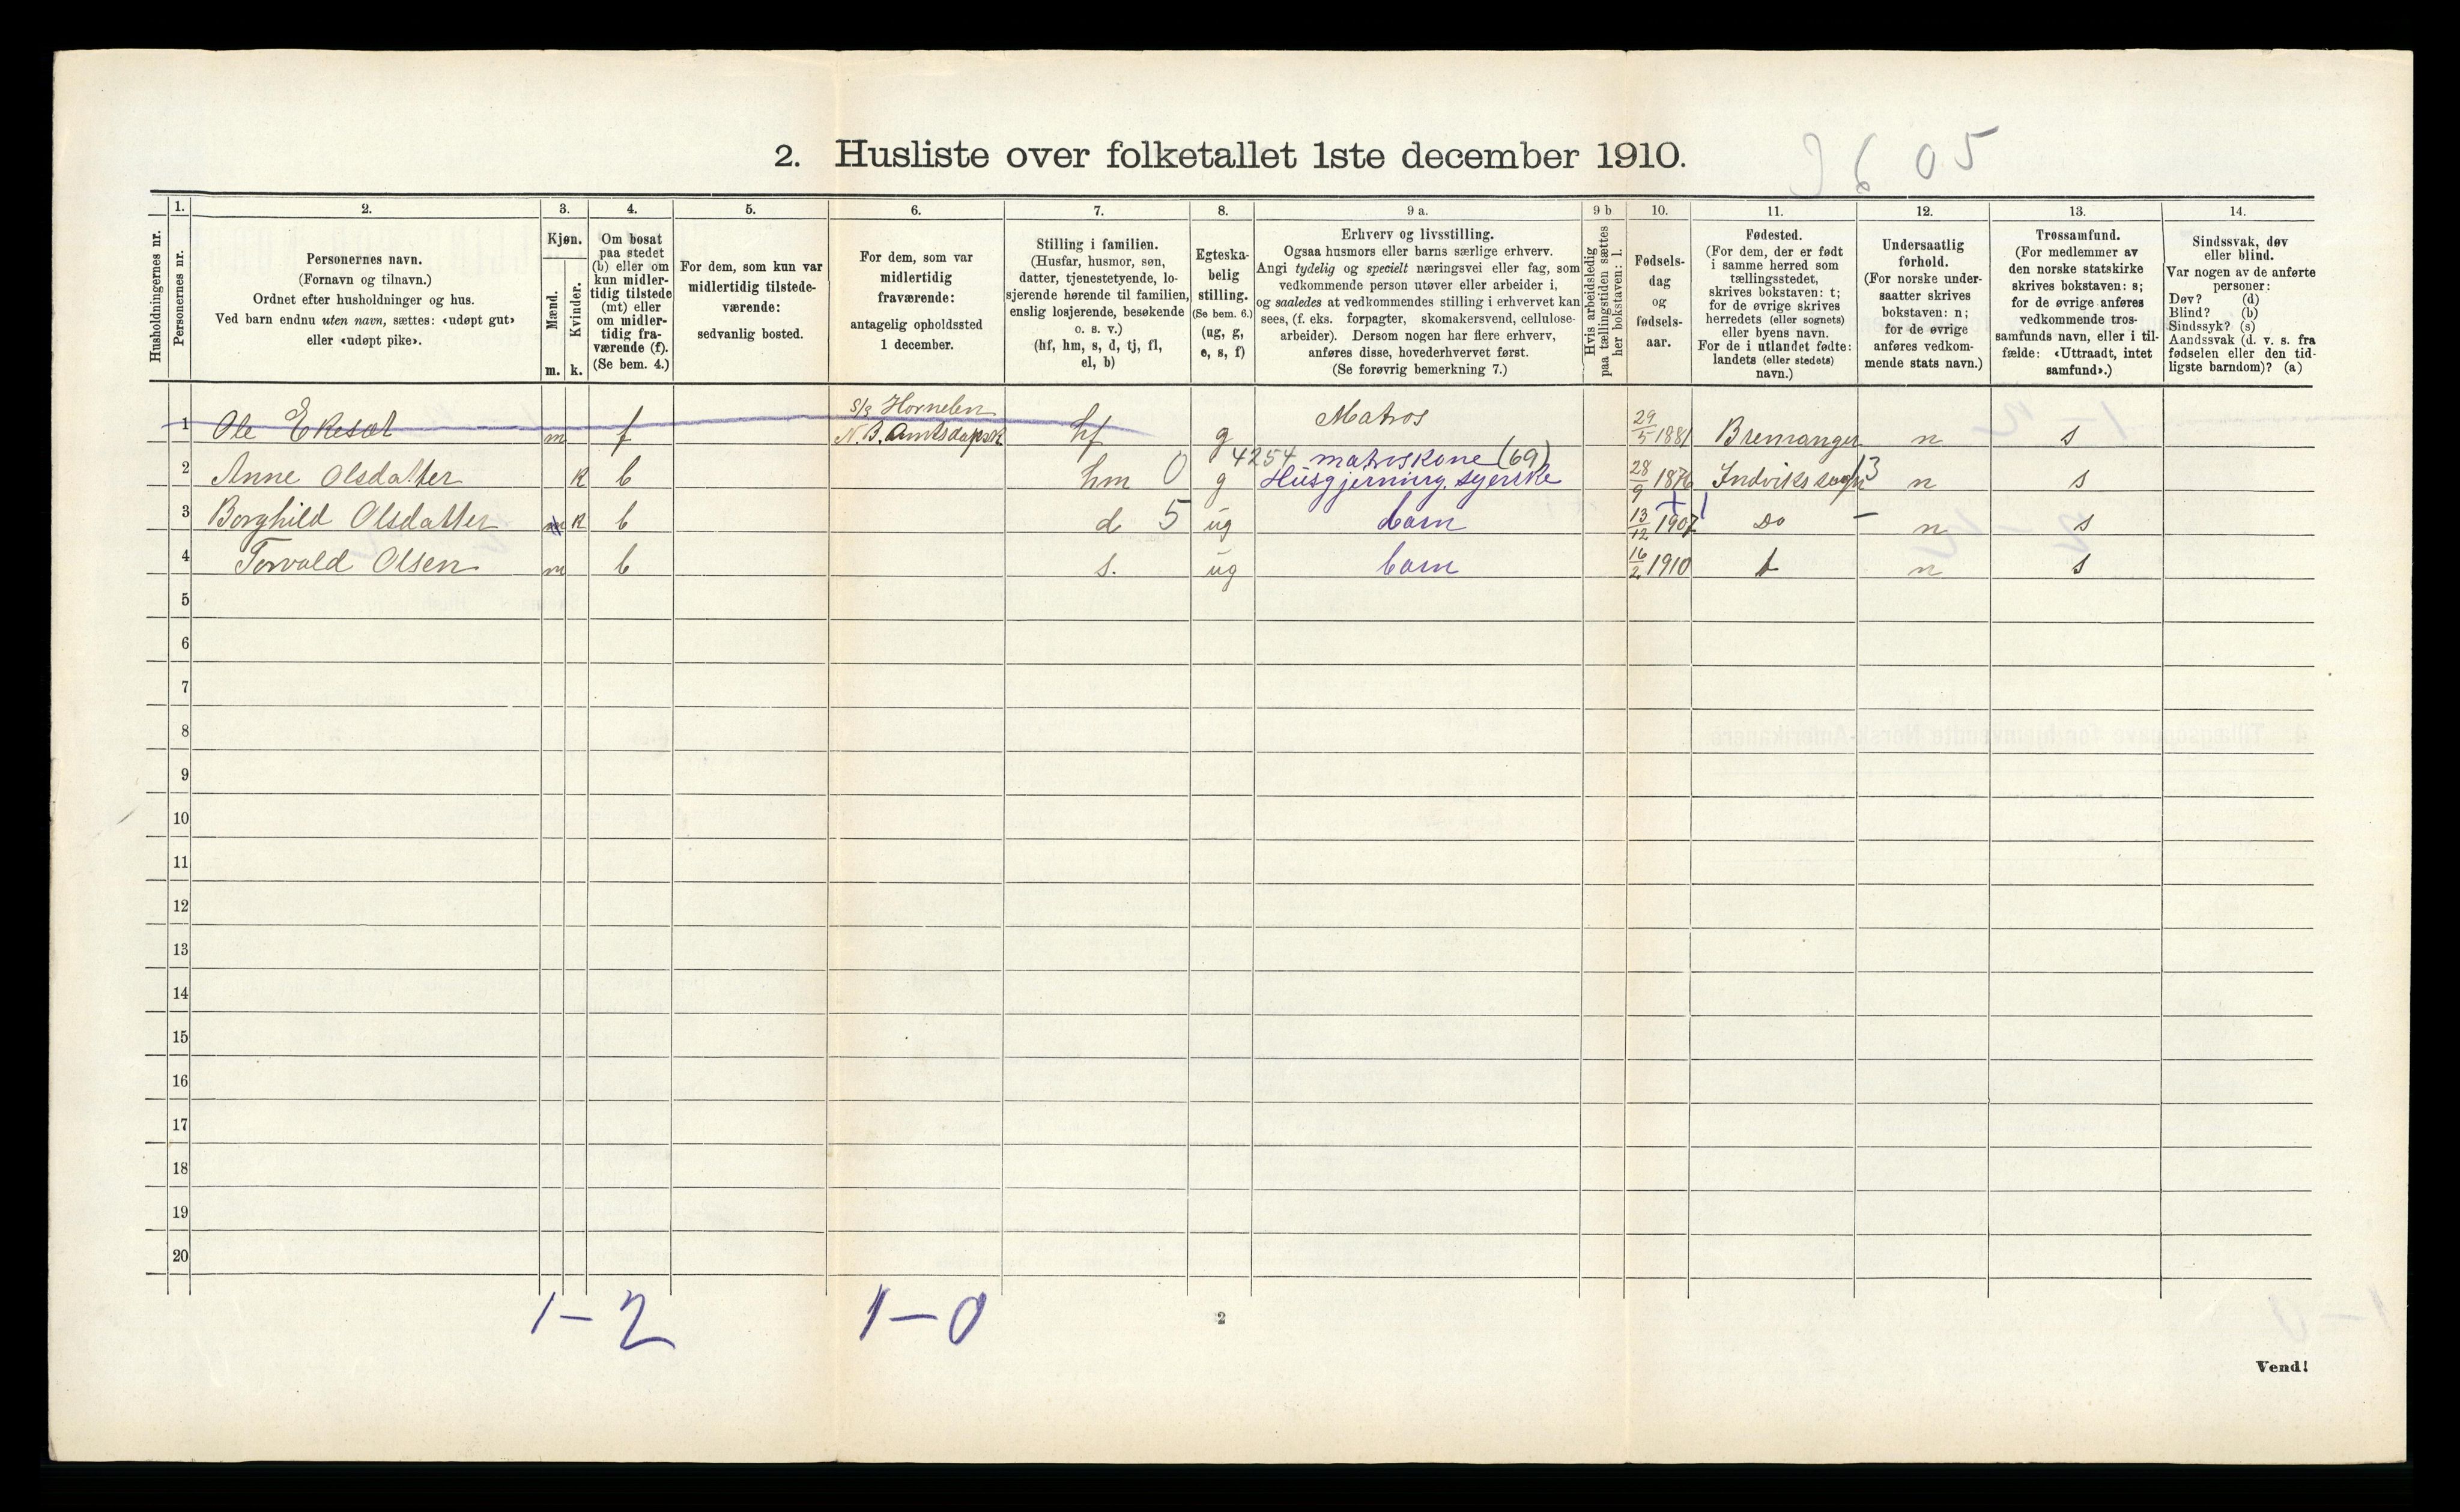 2. Husliste over folketallet 1ste december 1910.
9605
Husholdningernes nr.
1.
Personernes nr.
2.
Personernes navn.
(Fornavn og tilnavn.)
Ordnet efter husholdninger og hus.
Ved barn endnu uten navn, sættes: «udøpt gut»
eller «udøpt pike».
3.
Kjøn.
Mænd.
Kvinder.
m. k.
4.
Om bosat
paa stedet
(b) eller om
kun midler-
tidig tilstede
(mt) eller
om midler-
tidig fra-
værende (f).
(Se bem. 4.)
5.
For dem, som kun var
midlertidig tilstede-
værende:
sedvanlig bosted.
6.
For dem, som var
midlertidig
fraværende:
antagelig opholdssted
1 december.
7.
Stilling i familien.
(Husfar, husmor, søn,
datter, tjenestetyende, lo-
sjerende hørende til familien,
enslig losjerende, besøkende
o. s. v.)
(hf, hm, s, d, tj, fl,
el, b)
8.
Egteska-
belig
stilling.
(Se bem. 6.)
(ug, g,
e, s, f)
9 a.
Erhverv og livsstilling.
Ogsaa husmors eller barns særlige erhverv.
Angi tydelig og specielt næringsvei eller fag, som
vedkommende person utøver eller arbeider i,
og saaledes at vedkommendes stilling i erhvervet kan
sees, (f. eks. forpagter, skomakersvend, cellulose-
arbeider). Dersom nogen har flere erhverv,
anføres disse, hovederhvervet først.
(Se forøvrig bemerkning 7.)
9 b
Hvis arbeidsledig
paa tællingstiden sættes
her bokstaven: l.
10.
Fødsels-
dag
og
fødsels-
aar.
11.
Fødested.
(For dem, der er født
i samme herred som
tællingsstedet,
skrives bokstaven: t;
for de øvrige skrives
herredets (eller sognets)
eller byens navn.
For de i utlandet fødte:
landets (eller stedets)
navn.)
12.
Undersaatlig
forhold.
(For norske under-
saatter skrives
bokstaven: n;
for de øvrige
anføres vedkom-
mende stats navn.)
13.
Trossamfund.
(For medlemmer av
den norske statskirke
skrives bokstaven: s;
for de øvrige anføres
vedkommende tros-
samfunds navn, eller i til-
fælde: «Uttraadt, intet
samfund».)
14.
Sindssvak, døv
eller blind.
Var nogen av de anførte
personer:
Døv? (d)
Blind? (b)
Sindssyk? (s)
Aandssvak (d. v. s. fra
fødselen eller den tid-
ligste barndom)? (a)
S/s Hornelen
1 Ole m f N. B. hf g Matros 29/5 1881 Bremanger n s
4254 matroskone (69)
2 Anne Olsdatter k b hm 0 g Husgjerning, syerske 28/9 1876 Indviks sogn 13 n s
3 Borghild Olsdatter k b d 5 ug barn 13/12 1907 Do – n s
4 Torvald Olsen m b s. ug barn 16/2 1910 t n s
5
6
7
8
9
10
11
12
13
14
15
16
17
18
19
20
1–2 1–0
2
Vend!